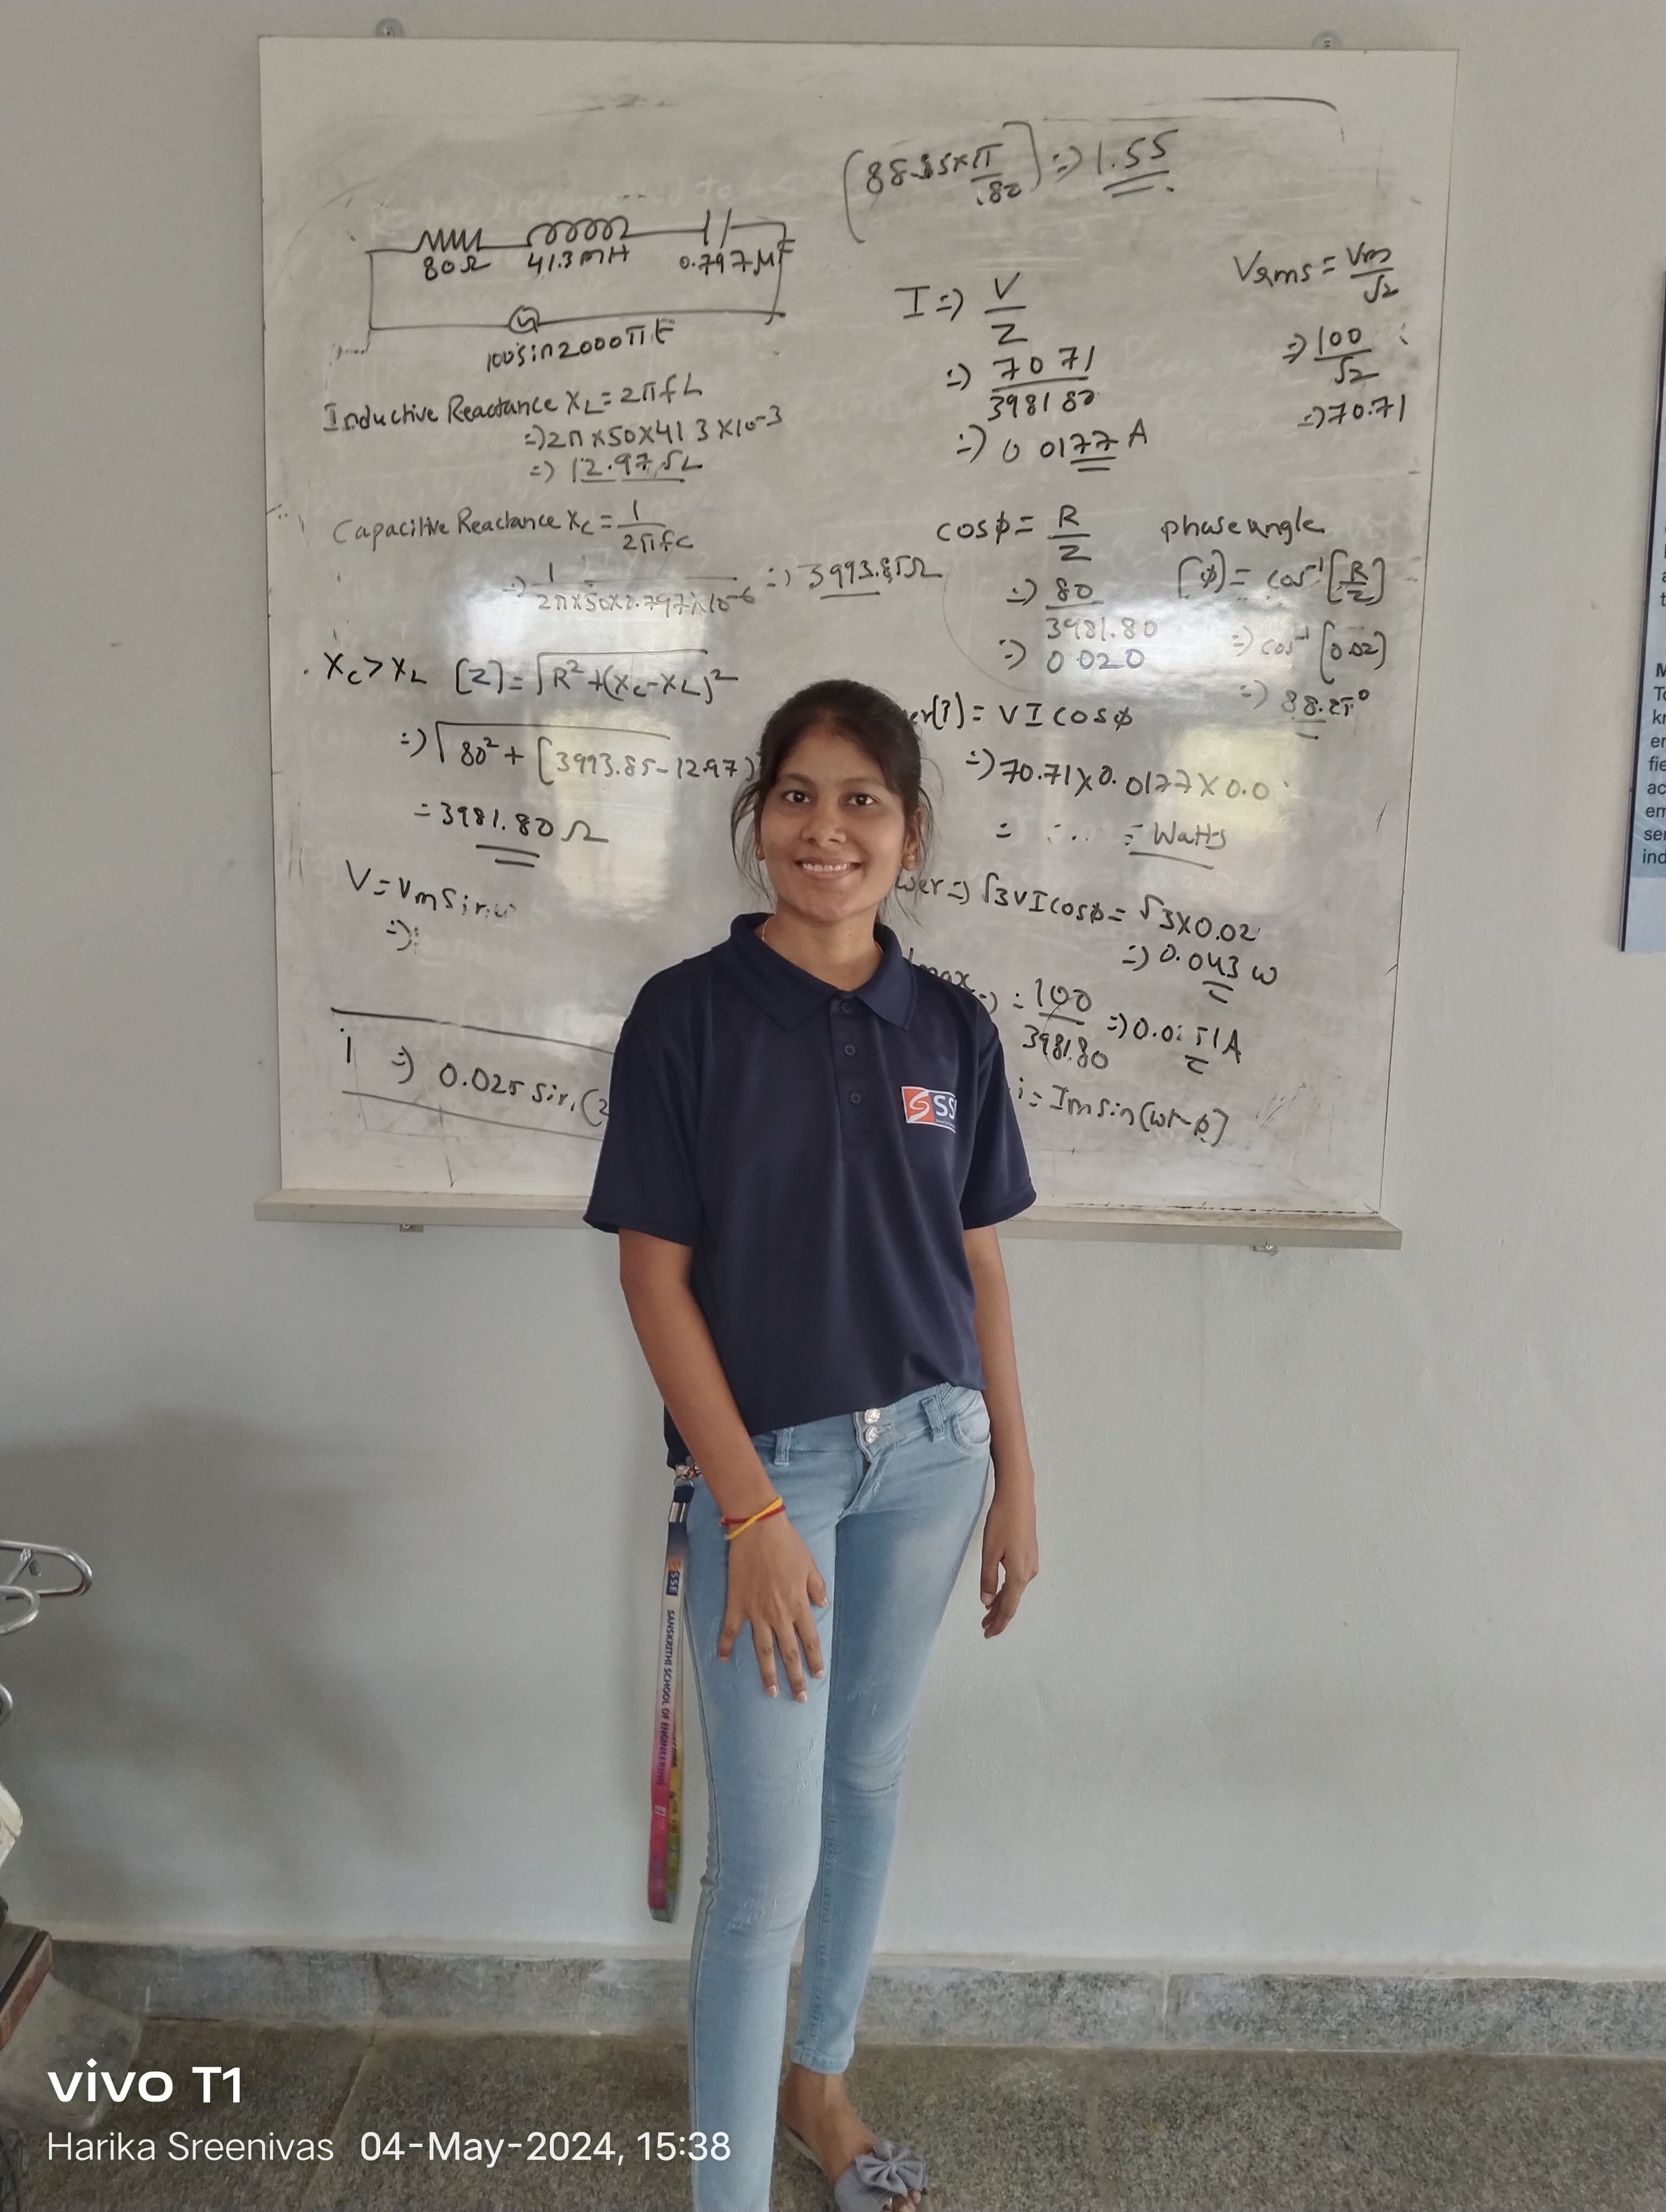 80Ω 41.3mH 0.797μF
100sin2000πt
Inductive Reactance XL=2πfL
=>2π×50×41.3×10-3
=> 12.97Ω
Capacitive Reactance Xc=1/2πfc
=> 1/2π×50×0.797×10-6 => 3993.85Ω
Xc>XL [Z]=√R²+(Xc-XL)²
=>√80²+[3993.85-12.97)
=3981.80Ω
V=Vmsin
=>
i => 0.025 sin(2
88.85×π/180 => 1.55
I=> V/Z
=> 70 71/3981 80
=> 0 0177 A
Vrms=Vm/√2
=>100/√2
=>70.71
cosφ= R/Z
=> 80/3981.80
=> 0 020
phase angle
[φ]= cos-1[R/Z]
=> cos-1[0.02]
=> 88.85°
= VI cosφ
=>70.71×0.0177×0.0
= Watts
wer=> √3VIcosφ=√3×0.02
=> 0.043 w
max
=100/3981.80 =>0.0251A
i=Imsin(wt-φ]
SS
SSE SANSKRITHI SCHOOL OF ENGINEERING
M
To
kn
en
fie
ac
em
ser
ind
vivo T1
Harika Sreenivas 04-May-2024, 15:38